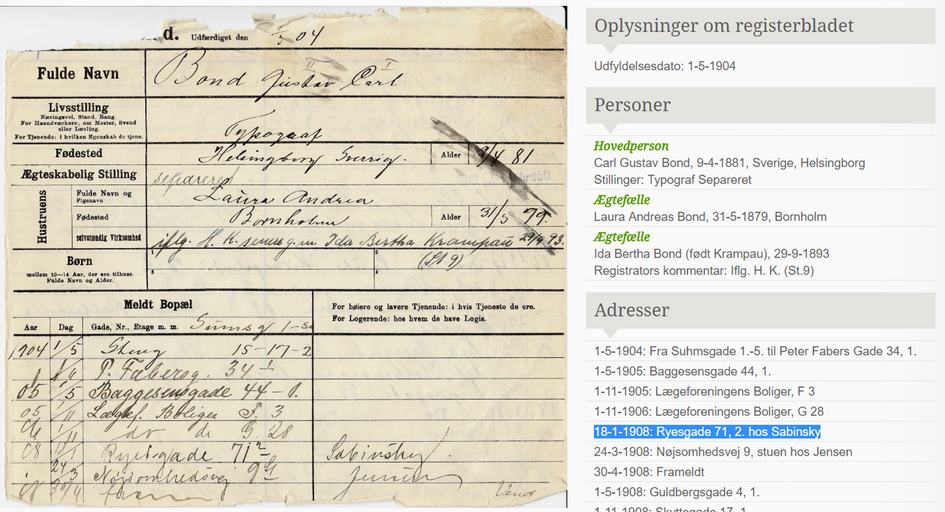 d. Udfærdiget den 04
Fulde Navn
Bond Gustav Carl
II I
Livsstilling
Næringsvei, Stand, Rang.
For Haandværkere; om Mester, Svend
eller Lærling.
For Tjenende: i hvilken Egenskab de tjene.
Typograf
Fødested
Helsingborg Sverrig.
Alder 9/4 81
Ægteskabelig Stilling
separeret
Hustruens
Fulde Navn og
Pigenavn
Laura Andrea
Fødested
Bornholm
Alder 31/5 79.
selvstændig Virksomhed
iflg. H. K. Ida Bertha Krampau 29/9 93.
(St 9)
Børn
mellem 10—14 Aar, der ere tilhuse.
Fulde Navn og Alder.
Meldt Bopæl
For høiere og lavere Tjenende: i hvis Tjeneste de ere.
For Logerende: hos hvem de have Logis.
Aar Dag Gade, Nr., Etage m. m.
1904 1/5 15-17-2
P. Fabersg. 34
05 1/5 Baggesensgade 44-1.
05 1/11 Lægef. Boliger F. 3
06 1/11 do do G 28
08 Ryesgade 71 Sabinsky
24/3 Nøjsomhedsvej 9 Jensen
08 30/4
Oplysninger om registerbladet
Udfyldelsesdato: 1-5-1904
Personer
Hovedperson
Carl Gustav Bond, 9-4-1881, Sverige, Helsingborg
Stillinger: Typograf Separeret
Ægtefælle
Laura Andreas Bond, 31-5-1879, Bornholm
Ægtefælle
Ida Bertha Bond (født Krampau), 29-9-1893
Registrators kommentar: Iflg. H. K. (St.9)
Adresser
1-5-1904: Fra Suhmsgade 1.-5. til Peter Fabers Gade 34, 1.
1-5-1905: Baggesensgade 44, 1.
1-11-1905: Lægeforeningens Boliger, F 3
1-11-1906: Lægeforeningens Boliger, G 28
18-1-1908: Ryesgade 71, 2. hos Sabinsky
24-3-1908: Nøjsomhedsvej 9, stuen hos Jensen
30-4-1908: Frameldt
1-5-1908: Guldbergsgade 4, 1.
1-11-1908: Skyttegade 17, 1.